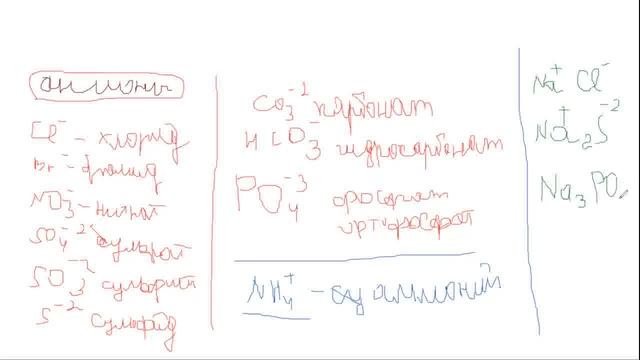 анионы
Cl⁻ - хлорид
Br⁻ - бромид
NO₃⁻ - нитрат
SO₄⁻² сульфат
SO₃⁻² сульфит
S⁻² сульфид
CO₃⁻² карбонат
HCO₃⁻ гидрокарбонат
PO₄⁻³ фосфат
ортофосфат
NH₄⁺ - аммоний
Na⁺ Cl⁻
Na⁺₂S⁻²
Na₃PO₄